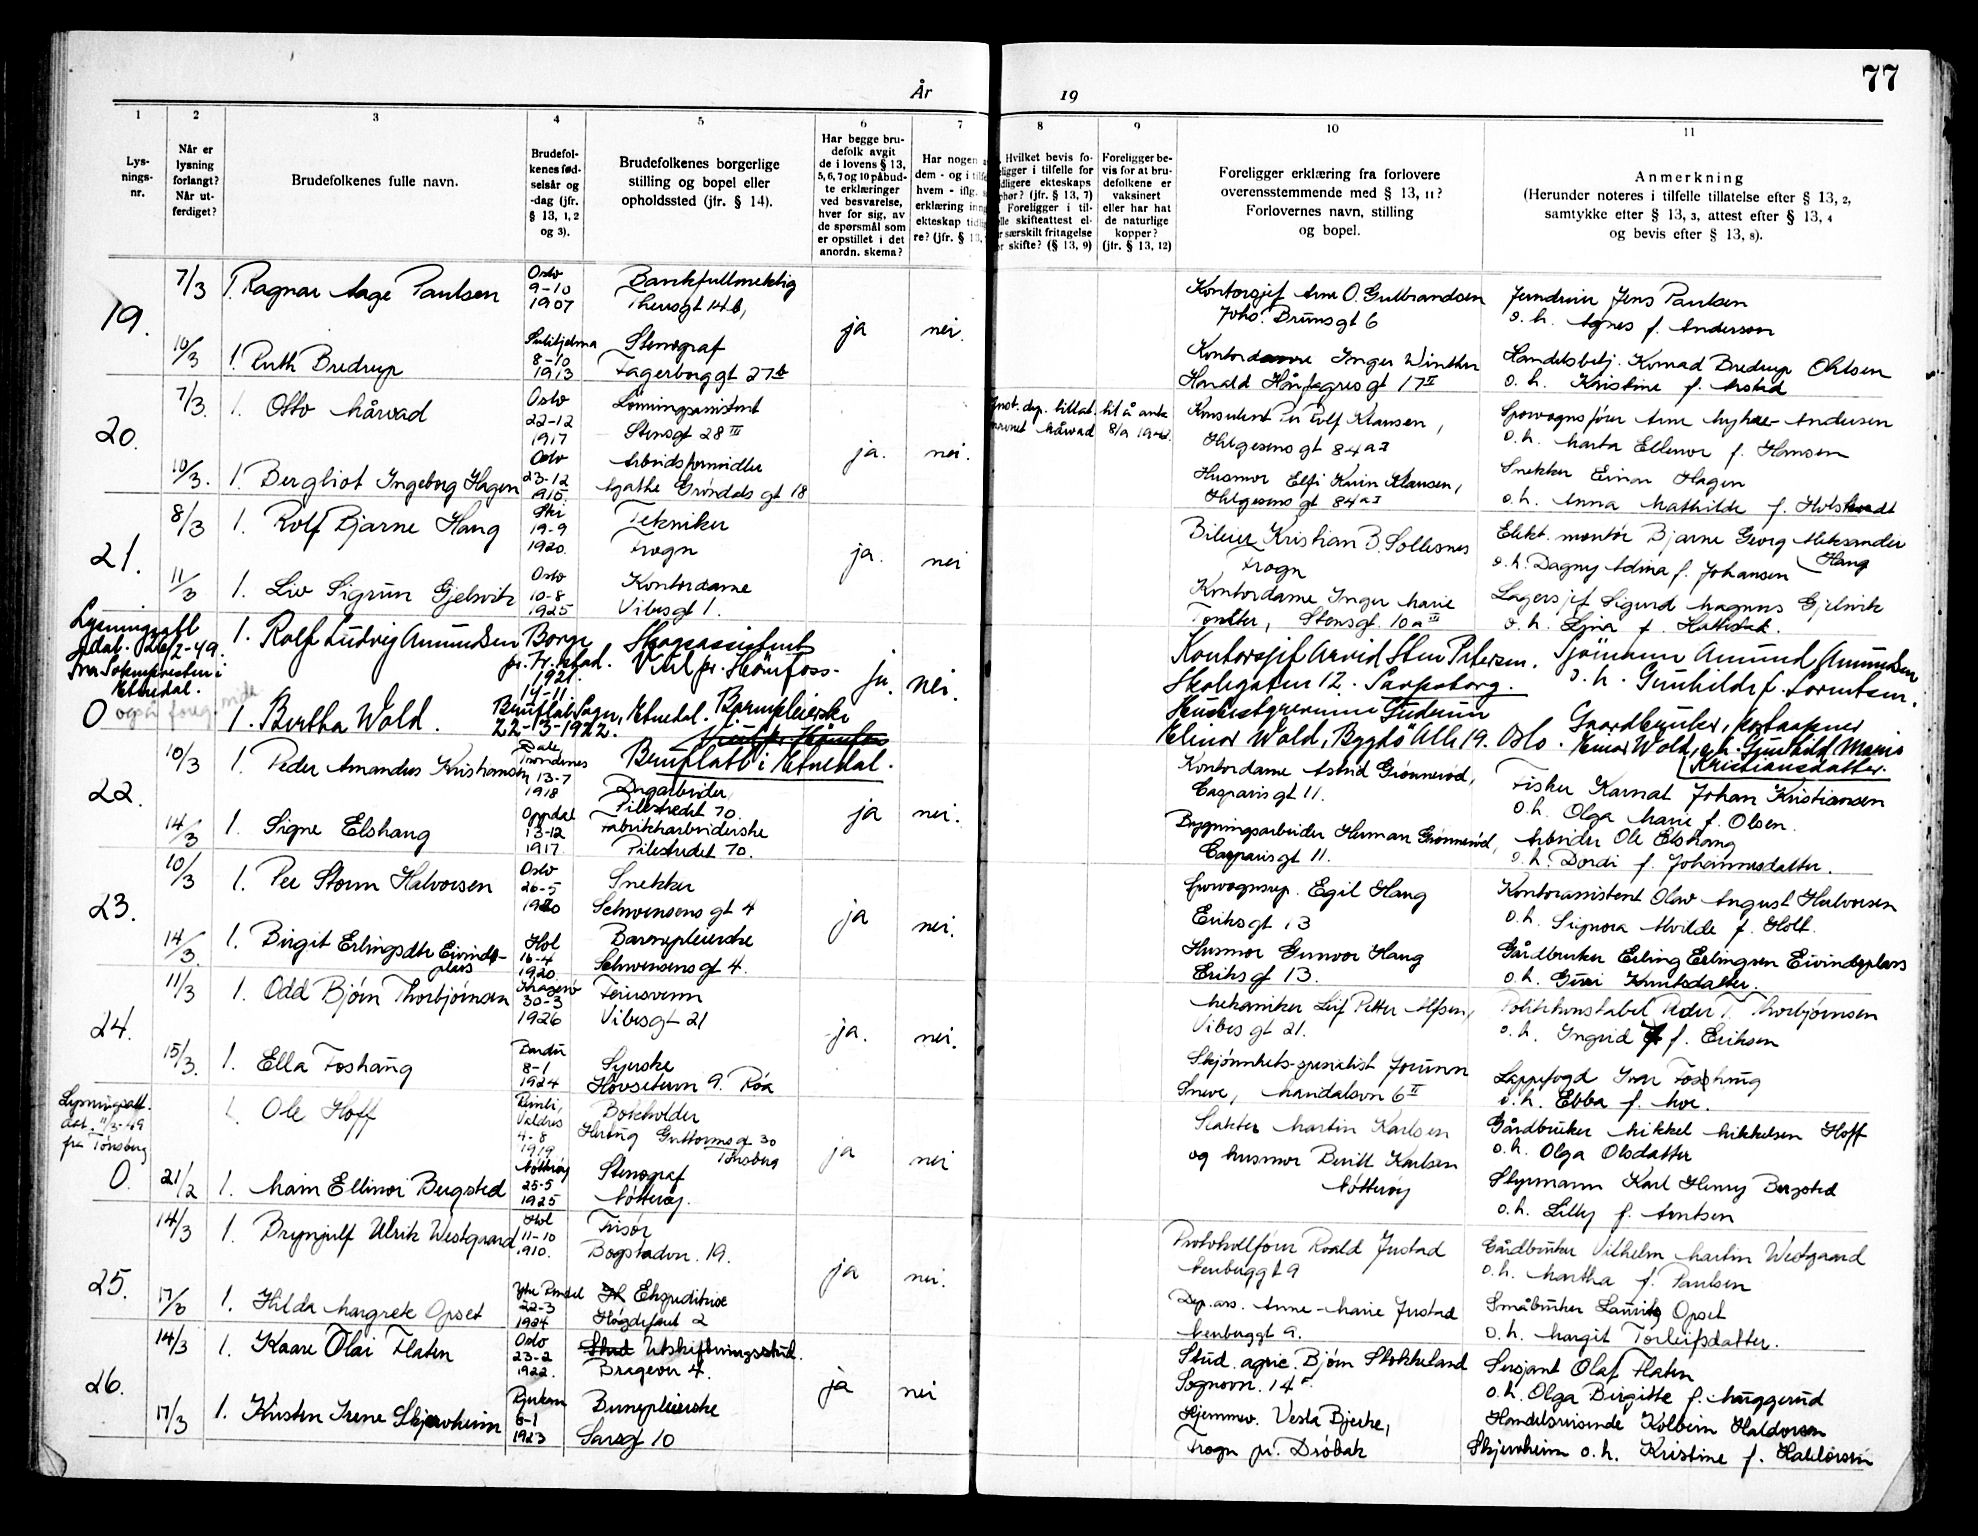 77
År
19
1
2
3
4
5
6
7
8
9
10
11
Lys-
nings-
nr.
Når er
lysning
forlangt?
Når ut-
ferdiget?
Brudefolkenes fulle navn.
Brudefol-
kenes fød-
selsår og
-dag (jfr.
§ 13, 1, 2
og 3).
Brudefolkenes borgerlige
stilling og bopel eller
opholdssted (jfr. § 14).
Har begge bru-
defolk avgit
de i lovens § 13,
5, 6, 7 og 10 påbud-
te erklæringer
ved besvarelse,
hver for sig, av
de spørsmål som
er opstillet i det
anordn. skema?
Har nogen
dem - og i
hvem - iflg.
erklæring
ekteskap
re? (jfr. § 13,
Hvilket bevis fo-
religger i tilfelle for
tidligere ekteskaps
ophør? (jfr. § 13, 7)
Foreligger i til-
elle skifteattest el-
r særskilt fritagelse
r skifte? (§ 13, 9)
Foreligger be-
vis for at bru-
defolkene er
vaksinert
eller har hat
de naturlige
kopper?
(jfr. § 13, 12)
Foreligger erklæring fra forlovere
overensstemmende med § 13, 11?
Forlovernes navn, stilling
og bopel.
Anmerkning
(Herunder noteres i tilfelle tillatelse efter § 13, 2,
samtykke efter § 13, 3, attest efter § 13, 4
og bevis efter § 13, 8).
19.
7/3 1. Ragnar Aage Paulsen
Oslo
9-10
1907
Bankfullmektig
Theresgt 14b,
ja nei.
Kontorsjef Arne O. Gulbrandsen
Johs. Brunsgt 6
Jerndreier Jens Paulsen
o. h. Agnes f. Anderson
10/3 1. Ruth Bredrup
Sulitjelma
8-10
1913
Stenograf
Fagerborggt 27b
Kontordame Inger Winther
Harald Hårfagresgt 17 II
Handelsbetj. Konrad Bredrup Ohlsen
o. h. Kristine f. Arstad
20.
7/3. 1. Otto Mårvad
Oslo
22-12
1917
Lønningsassistent
Stensgt 28 III
ja. nei.
Just. dep. tillat. til å anta
navnet Mårvad 8/9 1942.
Konsulent Per Rolf Klausen,
Helgesens gt 84a I
Sporvognsfører Arne Myhre Andersen
o. h. Marta Ellenor f. Hansen
10/3. 1. Bergliot Ingeborg Hagen
Oslo
23-12
1915.
Arbeidsformidler
Agathe Grøndals gt 18
Husmor Elfi Karin Klausen,
Helgesens gt 84a I
Snekker Einar Hagen
o. h. Anna Mathilde f. Holstvedt
21.
8/3 1. Rolf Bjarne Haug
Ski
19-9
1920.
Tekniker
Frogn
ja. nei
Bileier Kristian B. Sollesnes
Frogn
Elekt. montør Bjarne Georg Aleksander
Haug
o. h. Dagny Adina f. Johansen
11/3 1. Liv Sigrun Gjelsvik
Oslo
10-8
1925
Kontordame
Vibesgt 1.
Kontordame Inger Marie
Stensgt. 10a III
Lagersjef Sigurd Magnus Gjelsvik
o. h. Lina f.
Lysningsatt
Etnedal. 26/2-49.
fra Soknepresten i
Etnedal.
også foreg. side
O
1. Rolf Ludvig Amundsen
Borge
pr. Fr.stad.
1921.
14-11.
Skogassistent
Veul pr. Hönfoss.
ja. nei.
Kontorsjef Arvid Sten Petersen.
Skolegaten 12. Sarpsborg.
Sjömann Amund Amundsen
o. h. Gunhild f. Lorentsen.
1. Bertha Wold.
Bruflat Sogn, Etnedal.
22-13-1922.
Barnepleierske
Veul pr. Hönefoss
Bruflatt i Etnedal.
Gudrun
Elinor Wold, Bygdö Alle 19. Oslo.
Gaardbruker, postaapner
Einar Wold, o. h. Gunhild Marie
Kristiansdatter.
22.
10/3 1. Peder Amandus Kristiansen
Dale
Trondenes
13-7
1918
Pilestredet 70.
ja nei.
Kontordame Astrid Grønnerød,
Casparisgt 11.
Fisker Karnat Johan Kristiansen
o. h. Olga Marie f. Olsen.
14/3 1. Signe Elshaug
Oppdal
13-12
1917.
Fabrikkarbeiderske
Pilestredet 70.
Bygningsarbeider Herman Grønnerød,
Casparisgt 11.
Arbeider Ole Elshaug
o. h. Dordi f. Johannesdatter.
23.
10/3 1. Per Storm Halvorsen
Oslo
26-5
1920
Snekker
Schwensens gt 4
ja nei.
Sporvognsrep. Egil Haug
Eriksgt 13
Kontorassistent Olav August Halvorsen
o. h. Signora Alvilde f. Holt.
14/3. 1. Birgit Erlingsdtr Eivinds-
plass
Hol
16-4
1920.
Barnepleierske
Schwensensgt 4.
Husmor Gunvor Haug
Eriksgt 13.
Gårdbruker Erling Erlingsen Eivindsplass
o. h. Guri Knutsdatter.
24.
11/3 1. Odd Bjørn Thorbjørnsen
Kragerø
30-3
1926
Feiersvenn
Vibesgt 21
ja. nei.
Mekaniker Leif Petter Alfsen,
Vibes gt 21.
Politikonstabel Peder T. Thorbjørnsen
o. h. Ingrid f. Eriksen
15/3. 1. Ella Foshaug
Bardu
8-1
1924
Syerske
Hovsetervn 9. Røa
Skjønnhets-spesialist Jorunn
Sneve, Mandalsvn 6 II
Lappefogd Ivar Foshaug
o. h. Ebba f. Moe.
Lysningsatt.
dat. 11/3-49
fra Tønsberg
O
1. Ole Hoff
Reinli,
Valdres
4-8
1919
Bokholder
Hertug Guttormsgt 30
Tønsberg
ja nei
Slakter Martin Karlsen
og husmor Berit Karlsen
Nøtterøy
Gårdbruker Mikkel Mikkelsen Hoff
o. h. Olga Olsdatter
21/2 1. Main Ellinor Bergsted
Nøtterøy
25-5
1925
Stenograf
Nøtterøy.
Styrmann Karl Henry Bergsted
o. h. Lilly f. Arntsen
25.
14/3 1. Brynjulf Ulrik Westgaard
Hol
11-10
1910.
Frisør
Bogstadvn. 19.
ja nei.
Protokollfører Roald Justad
Neuberggt 9
Gårdbruker Vilhelm Martin Westgaard
o. h. Martha f. Paulsen
17/3 1. Hilda Margrete Opset
Ytre Rendal
22-3
1924
Ekspeditrise
Høgdefaret 2
Dep. ass. Anne-Marie Justad
Neuberggt 9.
Småbruker Laurits Opset
o. h. Margit Torleifsdatter.
26.
14/3 1. Kaare Olai Flaten
Oslo
23-2
1922.
Stud Utskiftningsstud.
Bragevn 4.
ja nei
Stud. agric. Bjørn Stokkeland
Sognsvn. 14
Sersjant Olaf Flaten
o. h. Olga Birgitte f. Muggerud
17/3 1. Kirsten Irene Skjervheim
Rjukan
6-1
1923
Barnepleierske
Sarsgt 10
Hjemmev. Vesla Bjerke,
Frogn pr. Drøbak
Handelsreisende Kolbein Haldorsen
Skjervheim o. h. Kristine f. Haldorsen